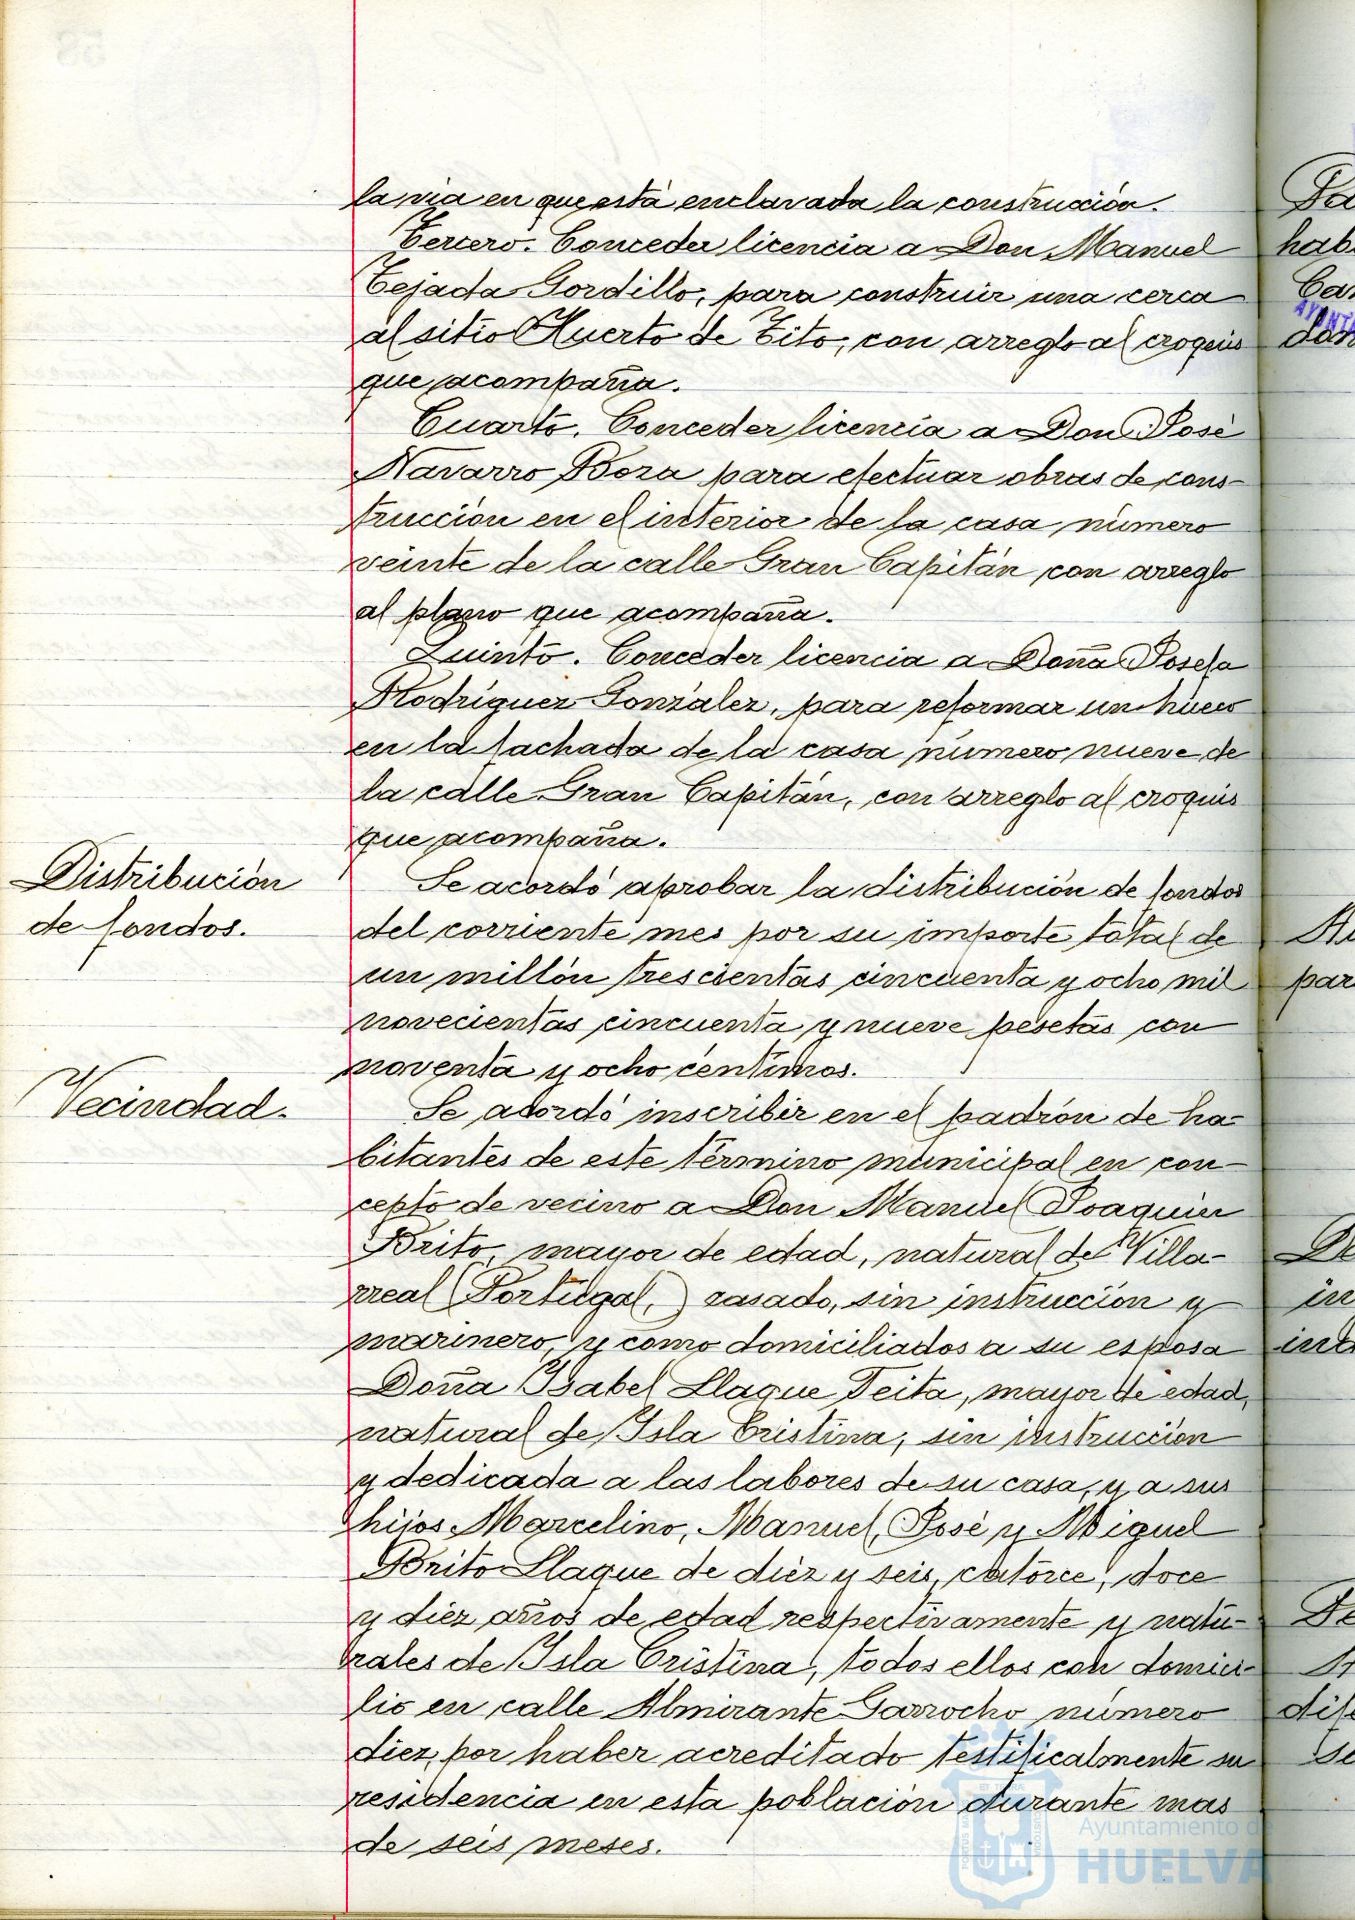 la via en que está enclavada la construcción.
Tercero. Conceder licencia a Don Manuel
Tejada Gordillo, para construir una cerca
al sitio Huerto de Tito, con arreglo al croquis
que acompaña.
Cuarto. Conceder licencia a Don José
Navarro Boza para efectuar obras de cons-
trucción en el interior de la casa número
veinte de la calle Gran Capitán con arreglo
al plano que acompaña.
Quinto. Conceder licencia a Doña Josefa
Rodríguez González, para reformar un hueco
en la fachada de la casa número nueve de
la calle Gran Capitán, con arreglo al croquis
que acompaña.
Distribución
de fondos.
Se acordó aprobar la distribución de fondos
del corriente mes por su importe total de
un millón trescientas cincuenta y ocho mil
novecientas cincuenta y nueve pesetas con
noventa y ocho céntimos.
Vecindad.
Se acordó inscribir en el padrón de ha-
bitantes de este término municipal en con-
cepto de vecino a Don Manuel Joaquin
Brito, mayor de edad, natural de Villa-
rreal (Portugal,) casado, sin instrucción y
marinero, y como domiciliados a su esposa
Doña Isabel Llaque Teita, mayor de edad,
natural de Isla Cristina, sin instrucción
y dedicada a las labores de su casa, y a sus
hijos Marcelino, Manuel, José y Miguel
Brito Llaque de diez y seis, catorce, doce
y diez años de edad respectivamente y natu-
rales de Isla Cristina, todos ellos con domici-
lio en calle Almirante Garrocho número
diez, por haber acreditado testificalmente su
residencia en esta población durante mas
de seis meses.
Ayuntamiento de
HUELVA